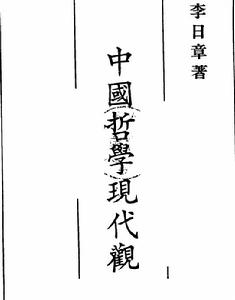 李日章著
中國哲學現代觀